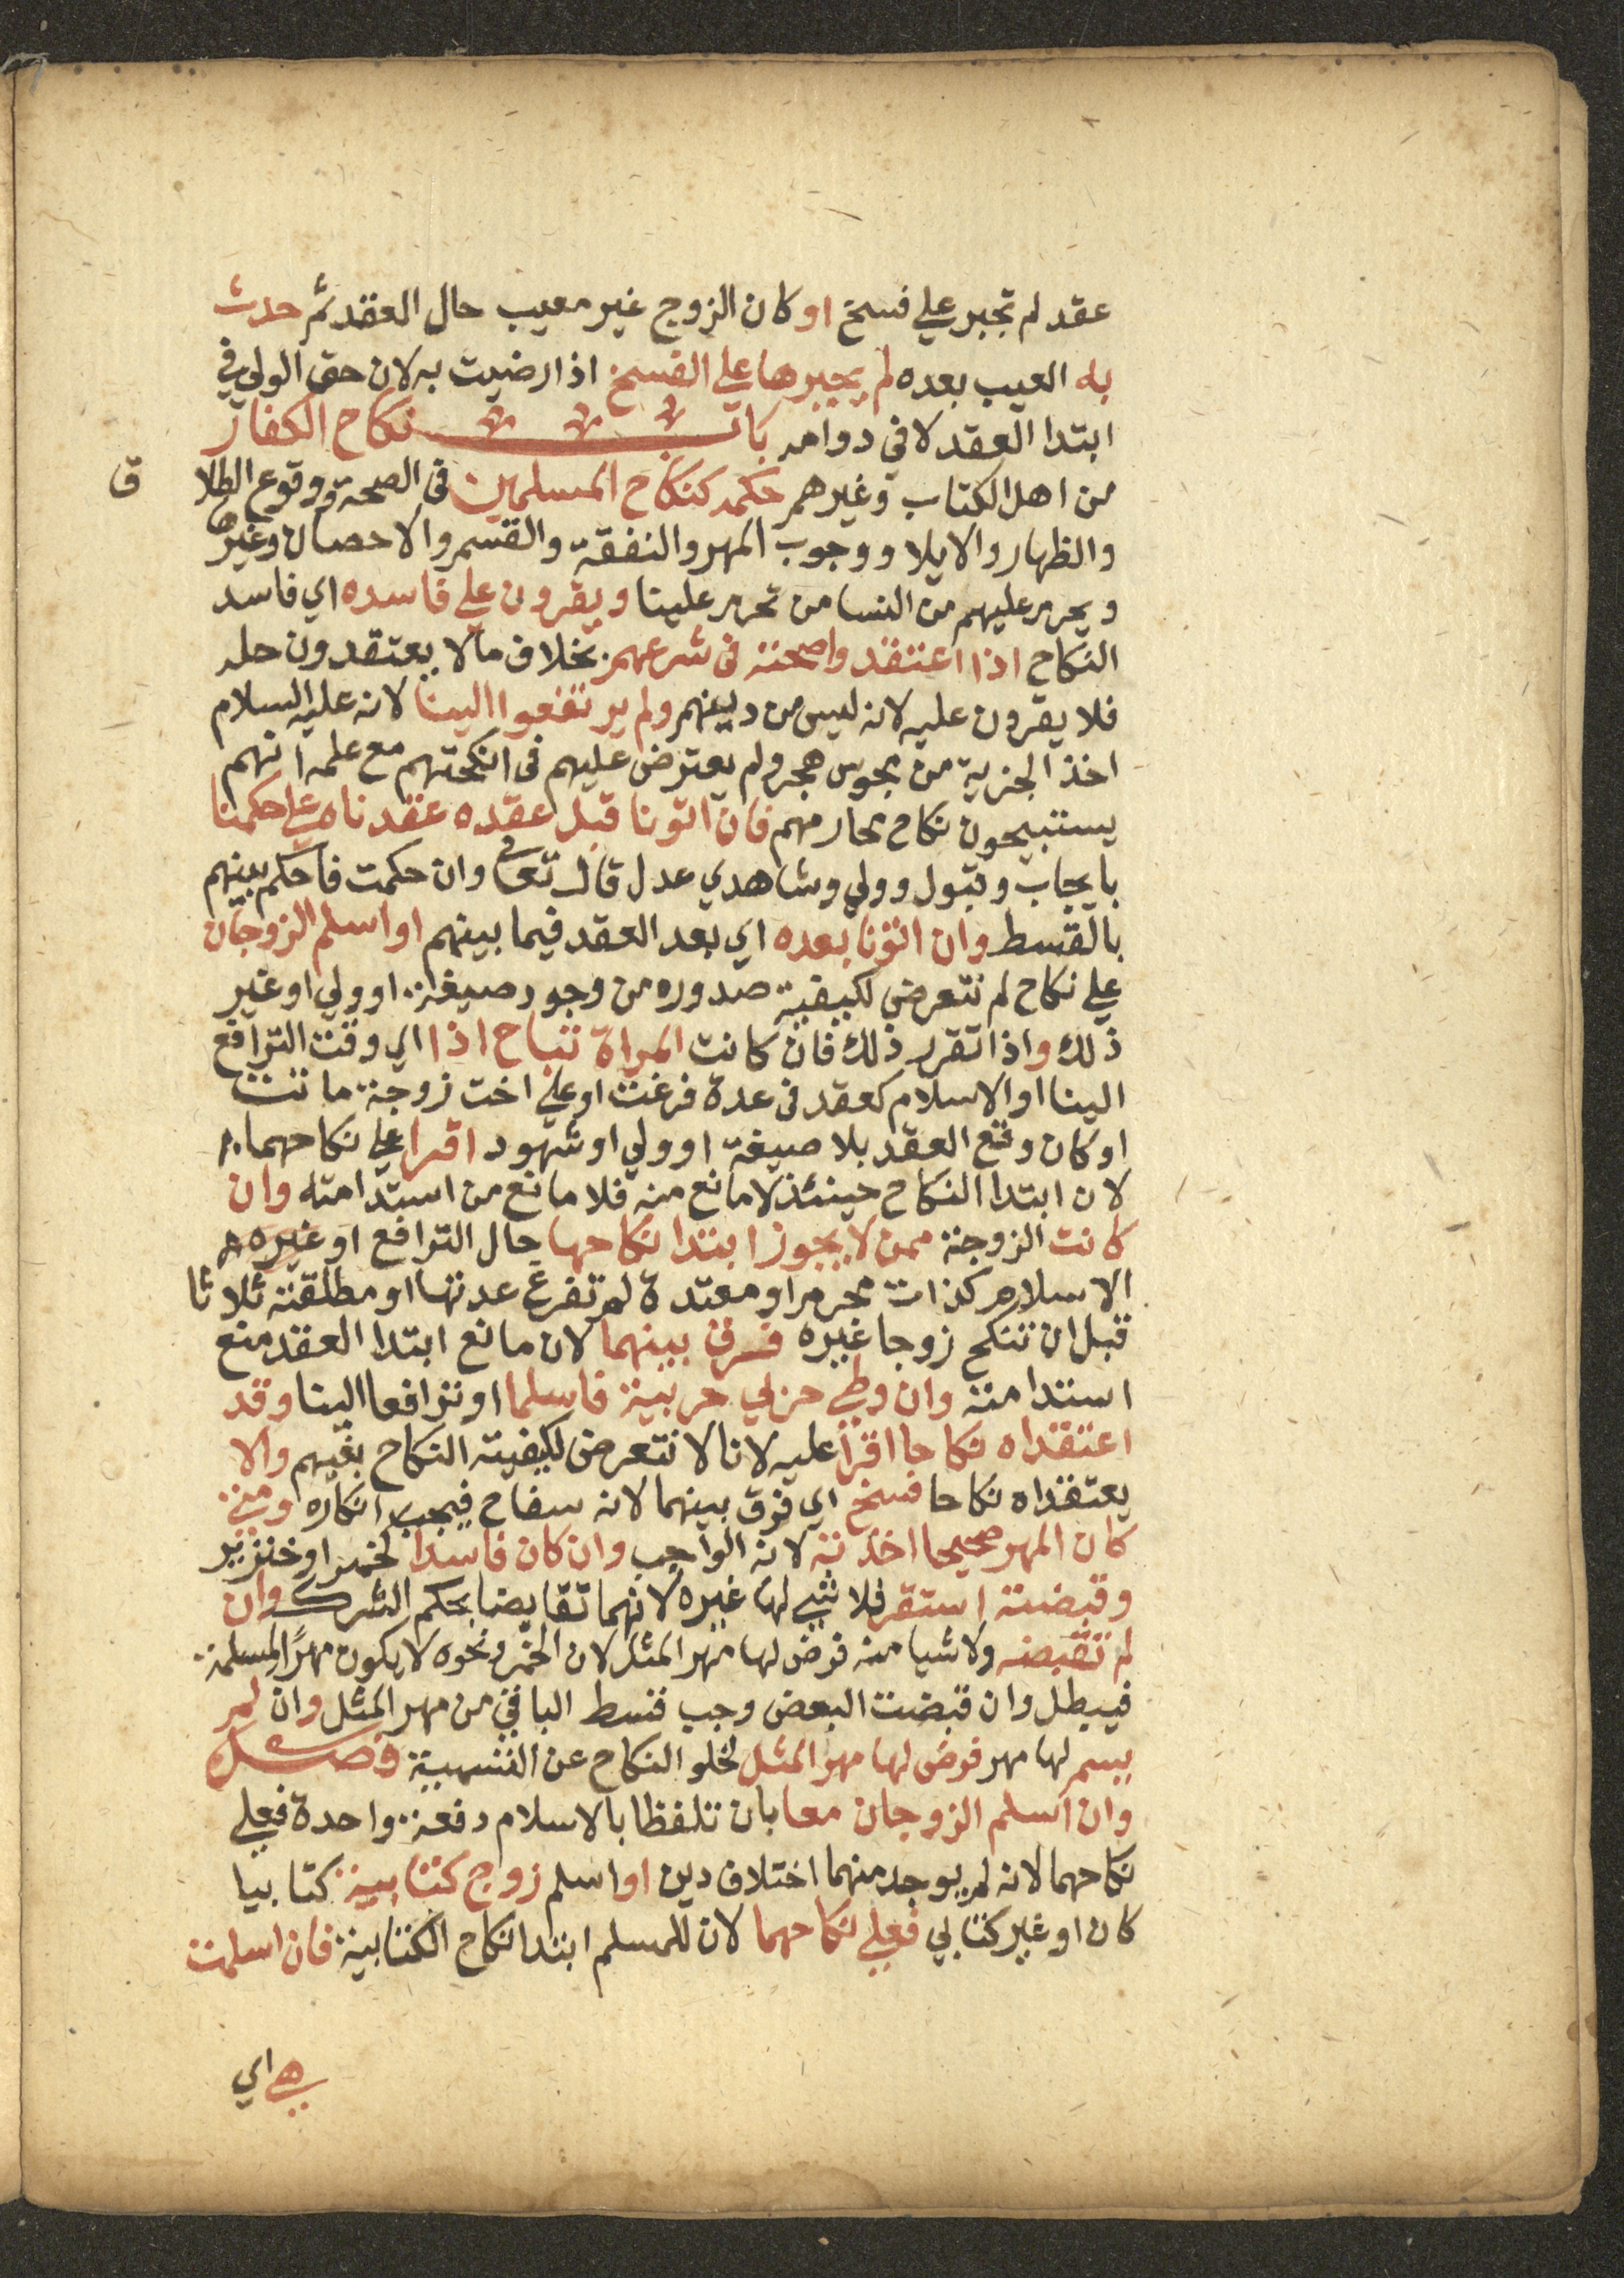 عقد لم تجبر علي فسخ او كان الزوج غير معيب حال العقد ثم حدث
به العيب بعده لم يجبرها علي الفسخ اذا رضيت به لان حق الولي في
ابتدا العقد لا في دوامه باب نكاح الكفار
من اهل الكتاب وغيرهم حكمه كنكاح المسلمين في الصحة ووقوع الطلا ق
والظهار والايلا ووجوب المهر والنفقة والقسم والاحصان وغيرها
ويحرم عليهم من النسا من تحرم علينا ويقرون علي فاسده اي فاسد
النكاح اذا اعتقدوا صحته في شرعهم بخلاف مالا يعتقدون حله
فلا يقرون عليه لانه ليس من دينهم ولم يرتفعوا الينا لانه عليه السلام
اخذ الجزية من مجوس هجر ولم يعترض عليهم في انكحتهم مع علمه انهم
يستبيحون نكاح محارمهم فان اتونا قبل عقده عقدناه علي حكمنا
بايجاب وقبول وولي وشاهدي عدل قال تعالى وان حكمت فاحكم بينهم
بالقسط وان اتونا بعده اي بعد العقد فيما بينهم او اسلم الزوجان
علي نكاح لم نتعرض لكيفية صدوره من وجود صيغة او ولي او غير
ذلك واذا تقرر ذلك فان كانت المراة تباح اذا اي وقت الترافع
الينا او الاسلام كعقد في عدة فرغت او علي اخت زوجة ماتت
او كان وقع العقد بلا صيغة او ولي او شهود اقرا علي نكاحهما
لان ابتدا النكاح حينئذ لا مانع منه فلا مانع من استدامته وان
كانت الزوجة ممن لا يجوز ابتدا نكاحها حال الترافع او غيره
الاسلام كذات محرم او معتدة لم تفرغ عدتها او مطلقته ثلاثا
قبل ان تنكح زوجا غيره فرق بينهما لان ما نع ابتدا العقد منع
استدامته وان وطي حربي حربية فاسلما او ترافعا الينا وقد
اعتقداه نكاحا اقرا عليه لانا لا نتعرض لكيفية النكاح بينهم والا
يعتقداه نكاحا فسخ اي فرق بينهما لانه سفاح فيجب انكاره ومتي
كان المهر صحيحا اخذته لانه الواجب وان كان فاسدا كخمر او خنزير
وقبضته استقر فلا شي لها غيره لانهما تقابضا بحكم الشرك وان
لم تقبضه ولا شيا منه فرض لها مهر المثل لان الخمر ونحوه لا يكون مهرا لمسلمة
فيبطل وان قبضت البعض وجب قسط الباقي من مهر المثل وان لم
يسم لها مهر فرض لها مهر المثل لخلو النكاح عن التسمية فصل
وان اسلم الزوجان معا بان تلفظا بالاسلام دفعة واحدة فعلي
نكاحهما لانه لم يوجد منهما اختلاف دين او اسلم زوج كتابية كتابيا
كان او غير كتابي فعلي نكاحهما لان للمسلم ابتدا نكاح الكتابية فان اسلمت
هي اي